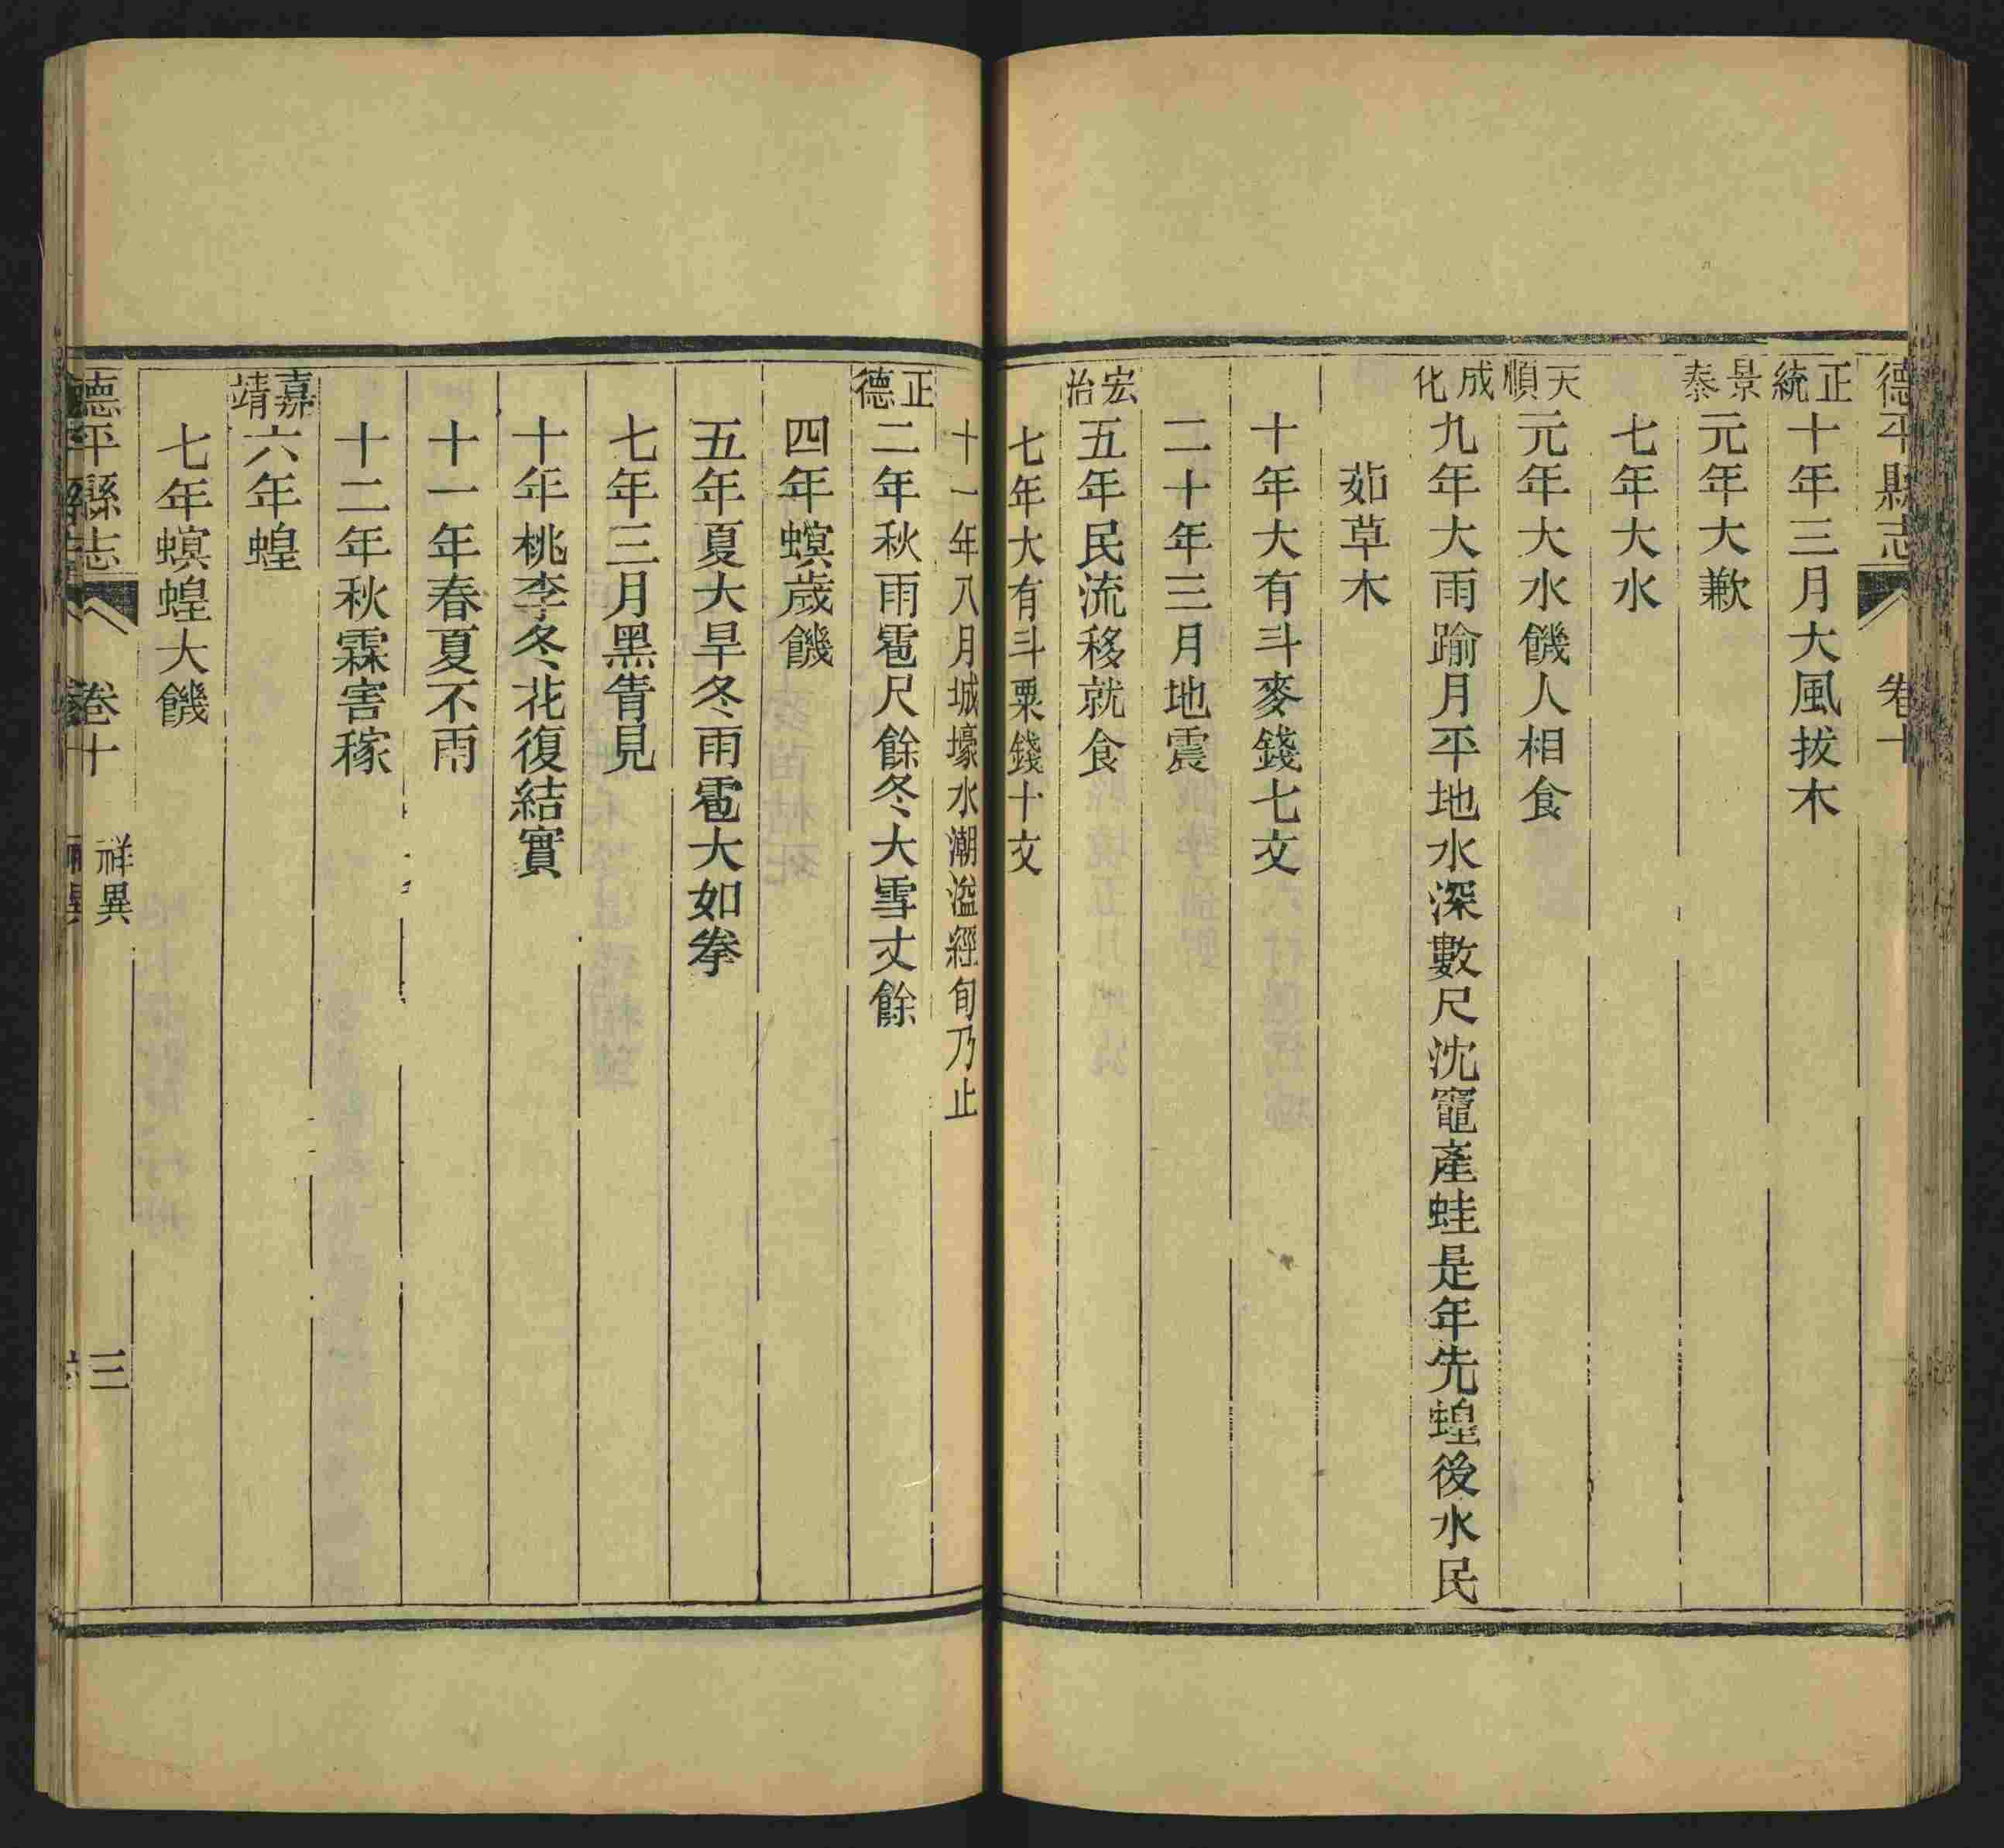 德平縣志 卷十
正統十年三月大風拔木
景泰元年大歉
七年大水
天順元年大水饑人相食
成化九年大雨踰月平地水深數尺沈竈產蛙是年先蝗後水民
茹草木
十年大有斗麥錢七文
二十年三月地震
宏治五年民流移就食
七年大有斗粟錢十文
十一年八月城壕水潮溢經旬乃止
正德二年秋雨雹尺餘冬大雪丈餘
四年螟歲饑
五年夏大旱冬雨雹大如拳
七年三月黑眚見
十年桃李冬花復結實
十一年春夏不雨
十二年秋霖害稼
嘉靖六年蝗
七年螟蝗大饑
德平縣志 卷十 祥異 三